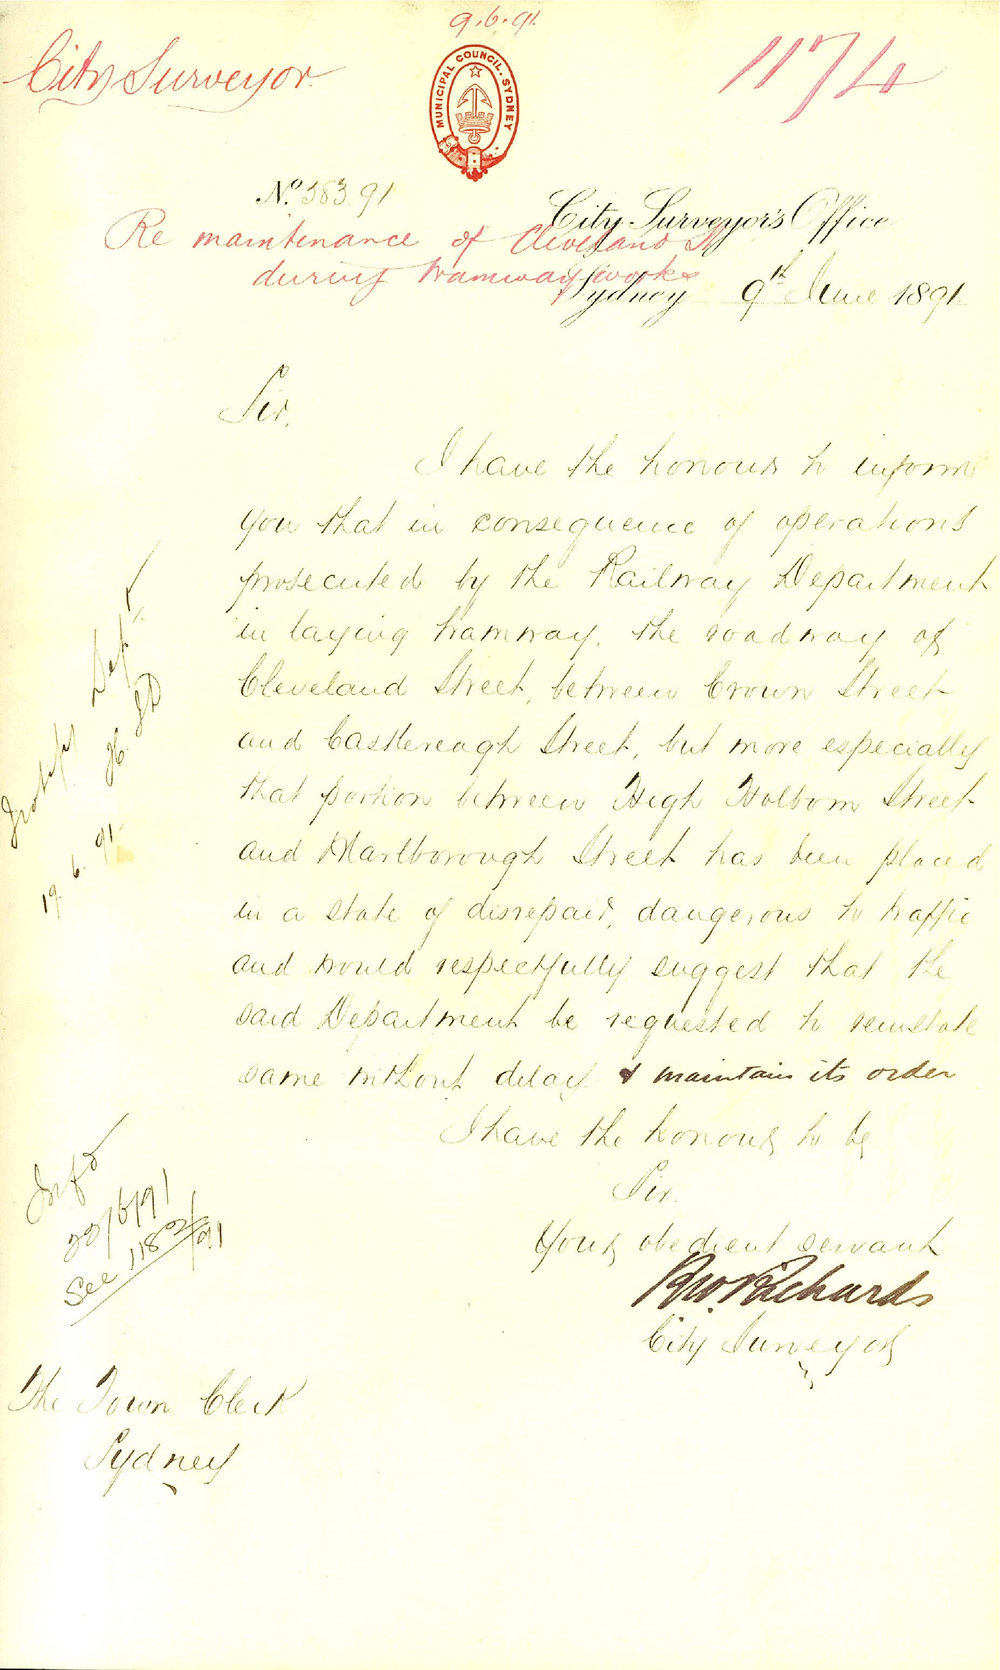 9.6.91
City Surveyor
1174
MUNICIPAL COUNCIL. SYDNEY
No. 383.91
City Surveyor's Office
Re maintenance of Cleveland St
during tramway works
Sydney 9th June 1891
Sir,
I have the honour to inform
you that in consequence of operations
prosecuted by the Railway Department
in laying tramway, the roadway of
Cleveland Street, between Crown Street
and Castlereagh Street, but more especially
that portion between High Holborn Street
and Marlborough Street has been placed
in a state of disrepair, dangerous to traffic
and would respectfully suggest that the
said Department be requested to reinstate
same without delay & maintain its order
I have the honour to be
Sir.
Your obedient servant
RW. Richards
City Surveyor
Dept
19.6.91
Infd
22/6/91
See 1182/91
The Town Clerk
Sydney